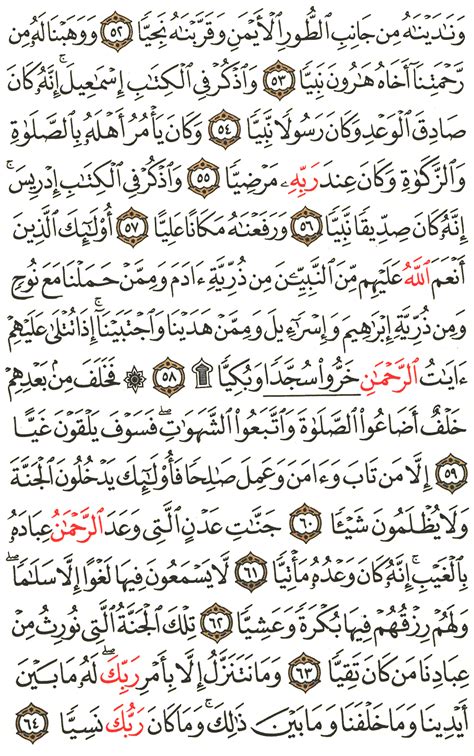 وَنَٰدَيۡنَٰهُ مِن جَانِبِ ٱلطُّورِ ٱلۡأَيۡمَنِ وَقَرَّبۡنَٰهُ نَجِيّٗا ٥٢ وَوَهَبۡنَا لَهُۥ مِن
رَّحۡمَتِنَآ أَخَاهُ هَٰرُونَ نَبِيّٗا ٥٣ وَٱذۡكُرۡ فِي ٱلۡكِتَٰبِ إِسۡمَٰعِيلَۚ إِنَّهُۥ كَانَ
صَادِقَ ٱلۡوَعۡدِ وَكَانَ رَسُولٗا نَّبِيّٗا ٥٤ وَكَانَ يَأۡمُرُ أَهۡلَهُۥ بِٱلصَّلَوٰةِ
وَٱلزَّكَوٰةِ وَكَانَ عِندَ رَبِّهِۦ مَرۡضِيّٗا ٥٥ وَٱذۡكُرۡ فِي ٱلۡكِتَٰبِ إِدۡرِيسَۚ
إِنَّهُۥ كَانَ صِدِّيقٗا نَّبِيّٗا ٥٦ وَرَفَعۡنَٰهُ مَكَانًا عَلِيًّا ٥٧ أُوْلَٰٓئِكَ ٱلَّذِينَ
أَنۡعَمَ ٱللَّهُ عَلَيۡهِم مِّنَ ٱلنَّبِيِّـۧنَ مِن ذُرِّيَّةِ ءَادَمَ وَمِمَّنۡ حَمَلۡنَا مَعَ نُوحٖ
وَمِن ذُرِّيَّةِ إِبۡرَٰهِيمَ وَإِسۡرَٰٓءِيلَ وَمِمَّنۡ هَدَيۡنَا وَٱجۡتَبَيۡنَآۚ إِذَا تُتۡلَىٰ عَلَيۡهِمۡ
ءَايَٰتُ ٱلرَّحۡمَٰنِ خَرُّواْۤ سُجَّدٗاۤ وَبُكِيّٗا۩ ٥٨ ۞ فَخَلَفَ مِنۢ بَعۡدِهِمۡ
خَلۡفٌ أَضَاعُواْ ٱلصَّلَوٰةَ وَٱتَّبَعُواْ ٱلشَّهَوَٰتِۖ فَسَوۡفَ يَلۡقَوۡنَ غَيًّا
٥٩ إِلَّا مَن تَابَ وَءَامَنَ وَعَمِلَ صَٰلِحٗا فَأُوْلَٰٓئِكَ يَدۡخُلُونَ ٱلۡجَنَّةَ
وَلَا يُظۡلَمُونَ شَيۡـٔٗا ٦٠ جَنَّٰتِ عَدۡنٍ ٱلَّتِي وَعَدَ ٱلرَّحۡمَٰنُ عِبَادَهُۥ
بِٱلۡغَيۡبِۚ إِنَّهُۥ كَانَ وَعۡدُهُۥ مَأۡتِيّٗا ٦١ لَّا يَسۡمَعُونَ فِيهَا لَغۡوًا إِلَّا سَلَٰمٗاۖ
وَلَهُمۡ رِزۡقُهُمۡ فِيهَا بُكۡرَةٗ وَعَشِيّٗا ٦٢ تِلۡكَ ٱلۡجَنَّةُ ٱلَّتِي نُورِثُ مِنۡ
عِبَادِنَا مَن كَانَ تَقِيّٗا ٦٣ وَمَا نَتَنَزَّلُ إِلَّا بِأَمۡرِ رَبِّكَۖ لَهُۥ مَا بَيۡنَ
أَيۡدِينَا وَمَا خَلۡفَنَا وَمَا بَيۡنَ ذَٰلِكَۚ وَمَا كَانَ رَبُّكَ نَسِيّٗا ٦٤